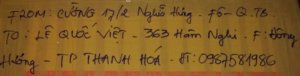 FROM: CƯỜNG 17/2 Nghĩa Hưng. F6 - Q.TB
TO: LÊ QUỐC VIỆT - 363 Hàm Nghi - F. Đông
Hương - TP THANH HOÁ. ĐT: 0987581986